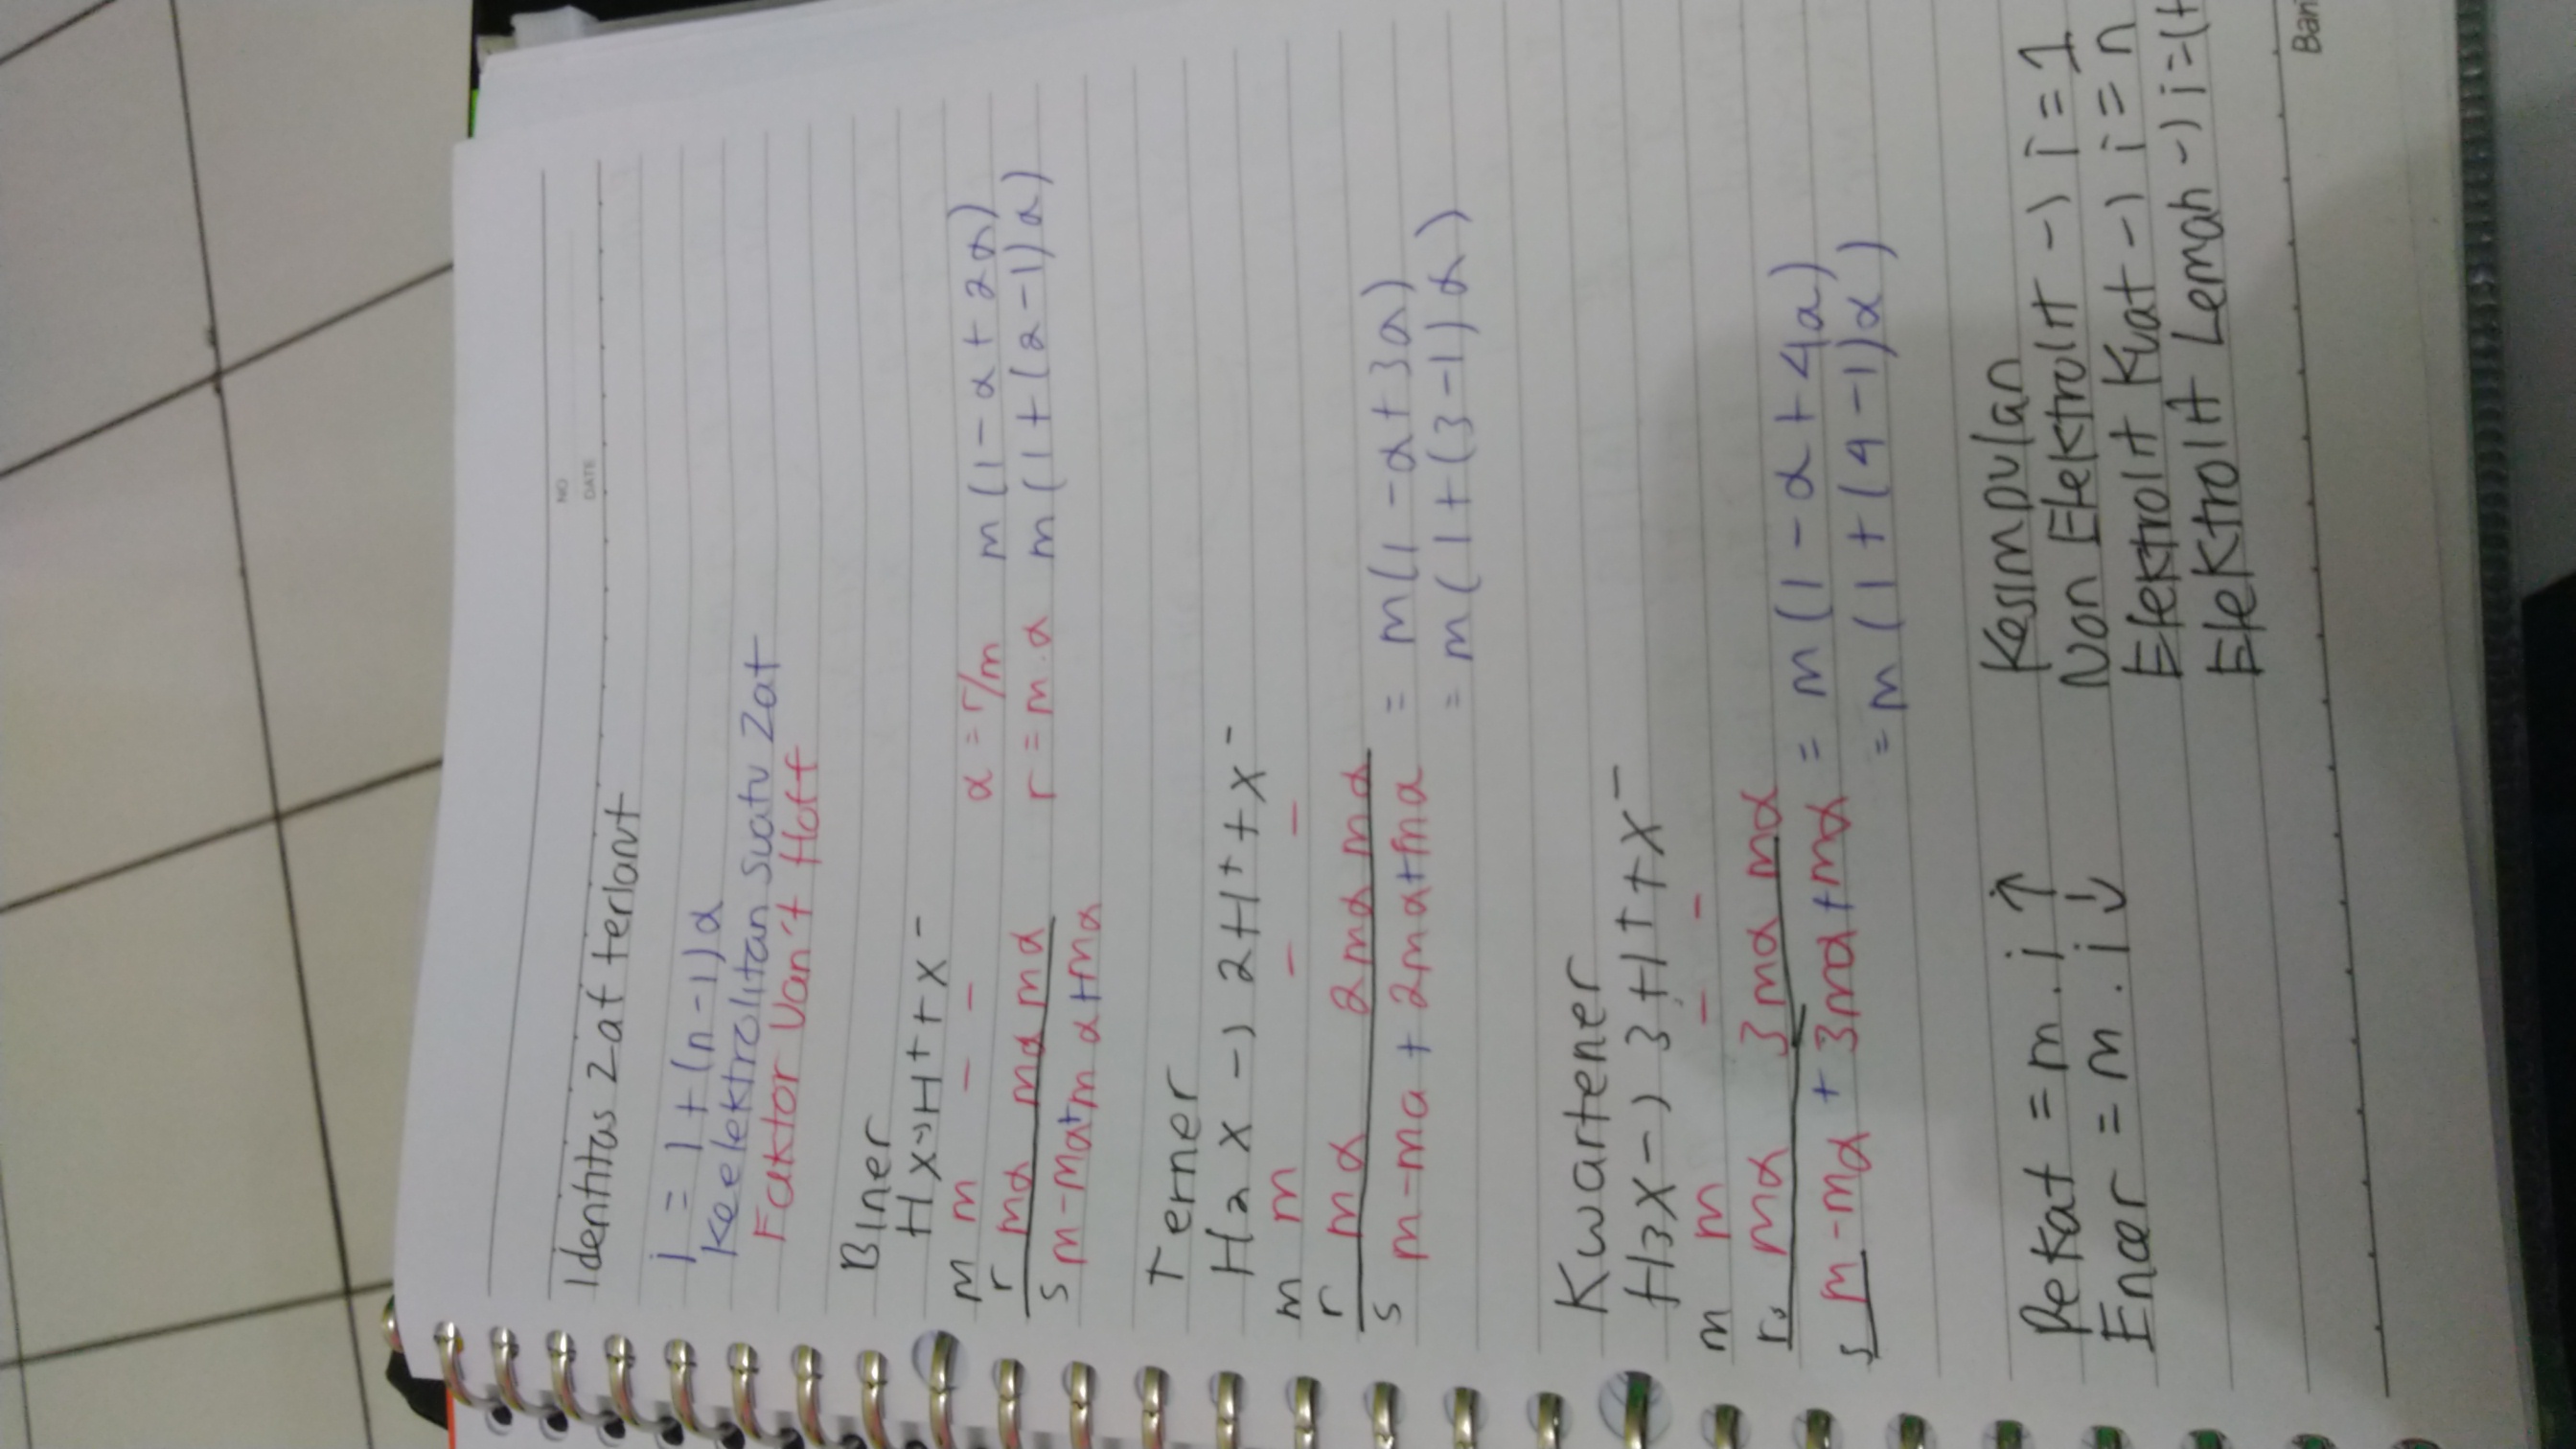 NO
DATE
Identitas Zat terlarut
i = 1 + (n - 1) α
Keelektrolitan Suatu Zat
Faktor Van't Hoff
Biner
HX → H+ + X -
m m - - α = r/m m (1 - α + 2α)
r mα mα mα r = m . α m (1 + (2 - 1) α)
s m - mα + mα + mα
Terner
H2 X -> 2H+ + X -
m m - -
r mα 2mα mα
s m - mα + 2mα + mα = m (1 - α + 3α)
= m (1 + (3 - 1) α)
Kwartener
H3X -> 3H+ + X -
m m - -
r mα 3mα mα
s m - mα + 3mα + mα = m (1 - α + 4α)
= m (1 + (4 - 1) α)
Pekat = m . i ↑
Encer = m . i ↓
Kesimpulan
Non Elektrolit -> i = 1
Elektrolit Kuat -> i = n
Elektrolit Lemah -> i = (+
Ban